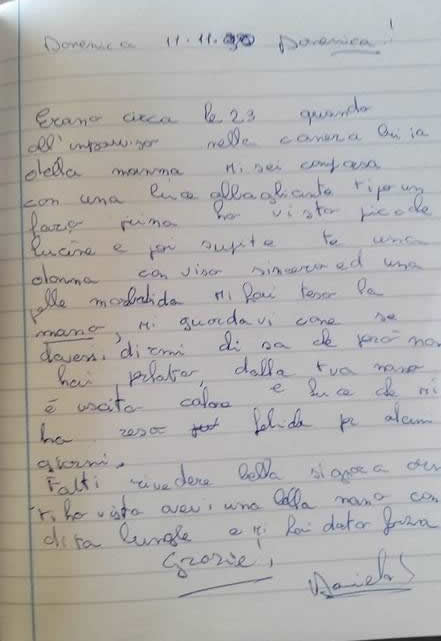 Domenica 11.11. Domenica!
Erano circa le 23 quando
all'improvviso nelle camera buia
della mamma mi sei comparsa
con una luce abbagliante tipo un
faro prima ho visto piccole
lucine e poi subito te una
donna con viso sincero ed una
pelle morbida mi hai teso la
mano, mi guardavi come se
dovessi dirmi di sa che però non
hai parlato, dalla tua mano
è uscito calore e luce che mi
ha reso felice per alcuni
giorni.
Fatti rivedere bella signora
ti ho vista avevi una bella mano con
dita lunghe e mi hai dato forza
Grazie!
Daniela